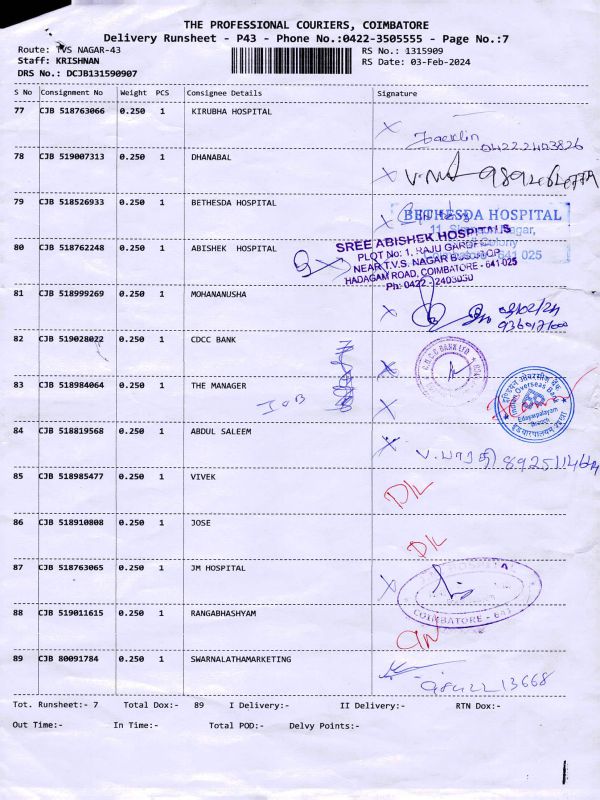 THE PROFESSIONAL COURIERS, COIMBATORE
Delivery Runsheet - P43 - Phone No.:0422-3505555 - Page No.:7
Route: TVS NAGAR-43
RS No.: 1315909
Staff: KRISHNAN
RS Date: 03-Feb-2024
DRS No.: DCJB131590907
S No Consignment No Weight PCS Consignee Details Signature
77 CJB 518763066 0.250 1 KIRUBHA HOSPITAL
Jacklin 04222403826
78 CJB 519007313 0.250 1 DHANABAL
79 CJB 518526933 0.250 1 BETHESDA HOSPITAL
BETHESDA HOSPITAL
80 CJB 518762248 0.250 1 ABISHEK HOSPITAL
SREE ABISHEK HOSPITALS
PLOT No: 1, RAJU GARDEN
NEAR T.V.S. NAGAR BUS STOP
HADAGAM ROAD, COIMBATORE - 641 025
Ph: 0422 - 2403030
81 CJB 518999269 0.250 1 MOHANANUSHA
82 CJB 519028022 0.250 1 CDCC BANK
83 CJB 518984064 0.250 1 THE MANAGER
IOB
Indian Overseas Bank
Edayarpalayam
Branch
84 CJB 518819568 0.250 1 ABDUL SALEEM
85 CJB 518985477 0.250 1 VIVEK
DL
86 CJB 518910808 0.250 1 JOSE
DL
87 CJB 518763065 0.250 1 JM HOSPITAL
COIMBATORE - 641
88 CJB 519011615 0.250 1 RANGABHASHYAM
89 CJB 80091784 0.250 1 SWARNALATHAMARKETING
9842213668
Tot. Runsheet:- 7 Total Dox:- 89 I Delivery:- II Delivery:- RTN Dox:-
Out Time:- In Time:- Total POD:- Delvy Points:-